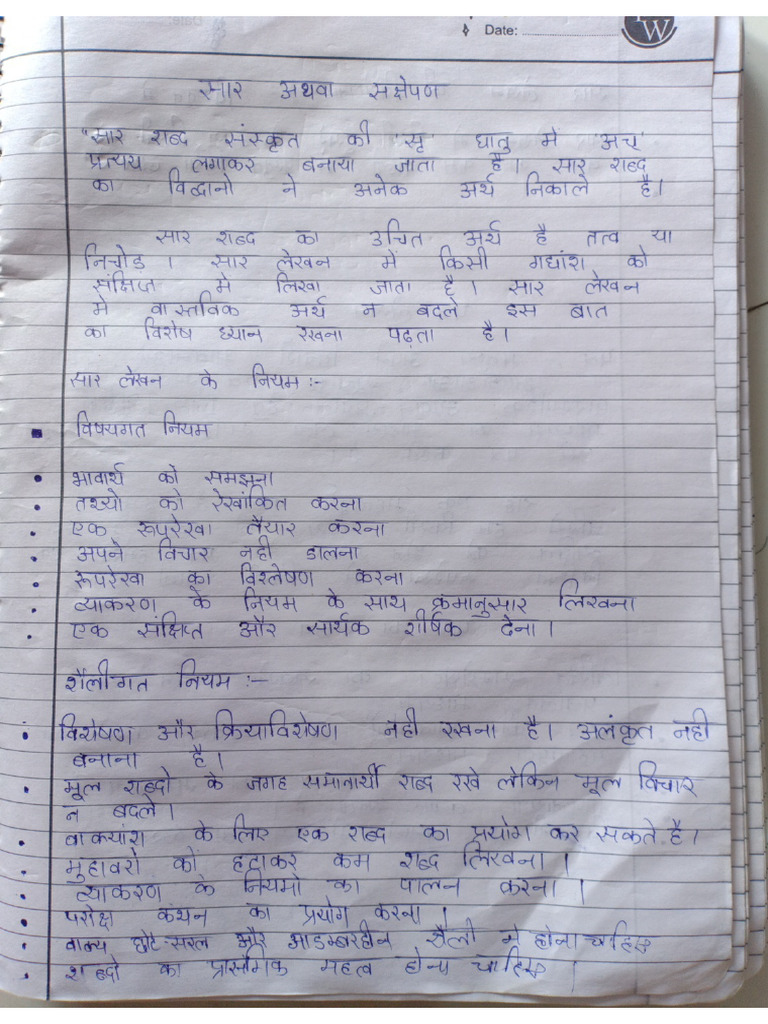 Date:
W
सार अथवा सक्षेपण
"सार शब्द संस्कृत की 'सृ' धातु में 'अच्'
प्रत्यय लगाकर बनाया जाता है। सार शब्द
का विद्वानो ने अनेक अर्थ निकाले है।
सार शब्द का उचित अर्थ है तत्व या
निचोड़। सार लेखन में किसी गद्यांश को
संक्षिप्त मे लिखा जाता है। सार लेखन
मे वास्तविक अर्थ न बदले इस बात
का विशेष ध्यान रखना पढ़ता है।
सार लेखन के नियम :-
विषयगत नियम
भावार्थ को समझना
तथ्यो को रेखांकित करना
एक रूपरेखा तैयार करना
अपने विचार नही डालना
रूपरेखा का विश्लेषण करना
व्याकरण के नियम के साथ क्रमानुसार लिखना
एक संक्षिप्त और सार्थक शीर्षक देना।
शैलीगत नियम :-
विशेषण और क्रियाविशेषण नही रखना है। अलंकृत नही
बनाना है।
मूल शब्दो के जगह समानार्थी शब्द रखे लेकिन मूल विचार
न बदले।
वाक्यांश के लिए एक शब्द का प्रयोग कर सकते है।
मुहावरो को हटाकर कम शब्द लिखना।
व्याकरण के नियमो का पालन करना।
परोक्ष कथन का प्रयोग करना।
वाक्य छोटे-सरल और आडम्बरहीन शैली मे होना चाहिए
शब्दो का प्रासंगिक महत्व होना चाहिए।